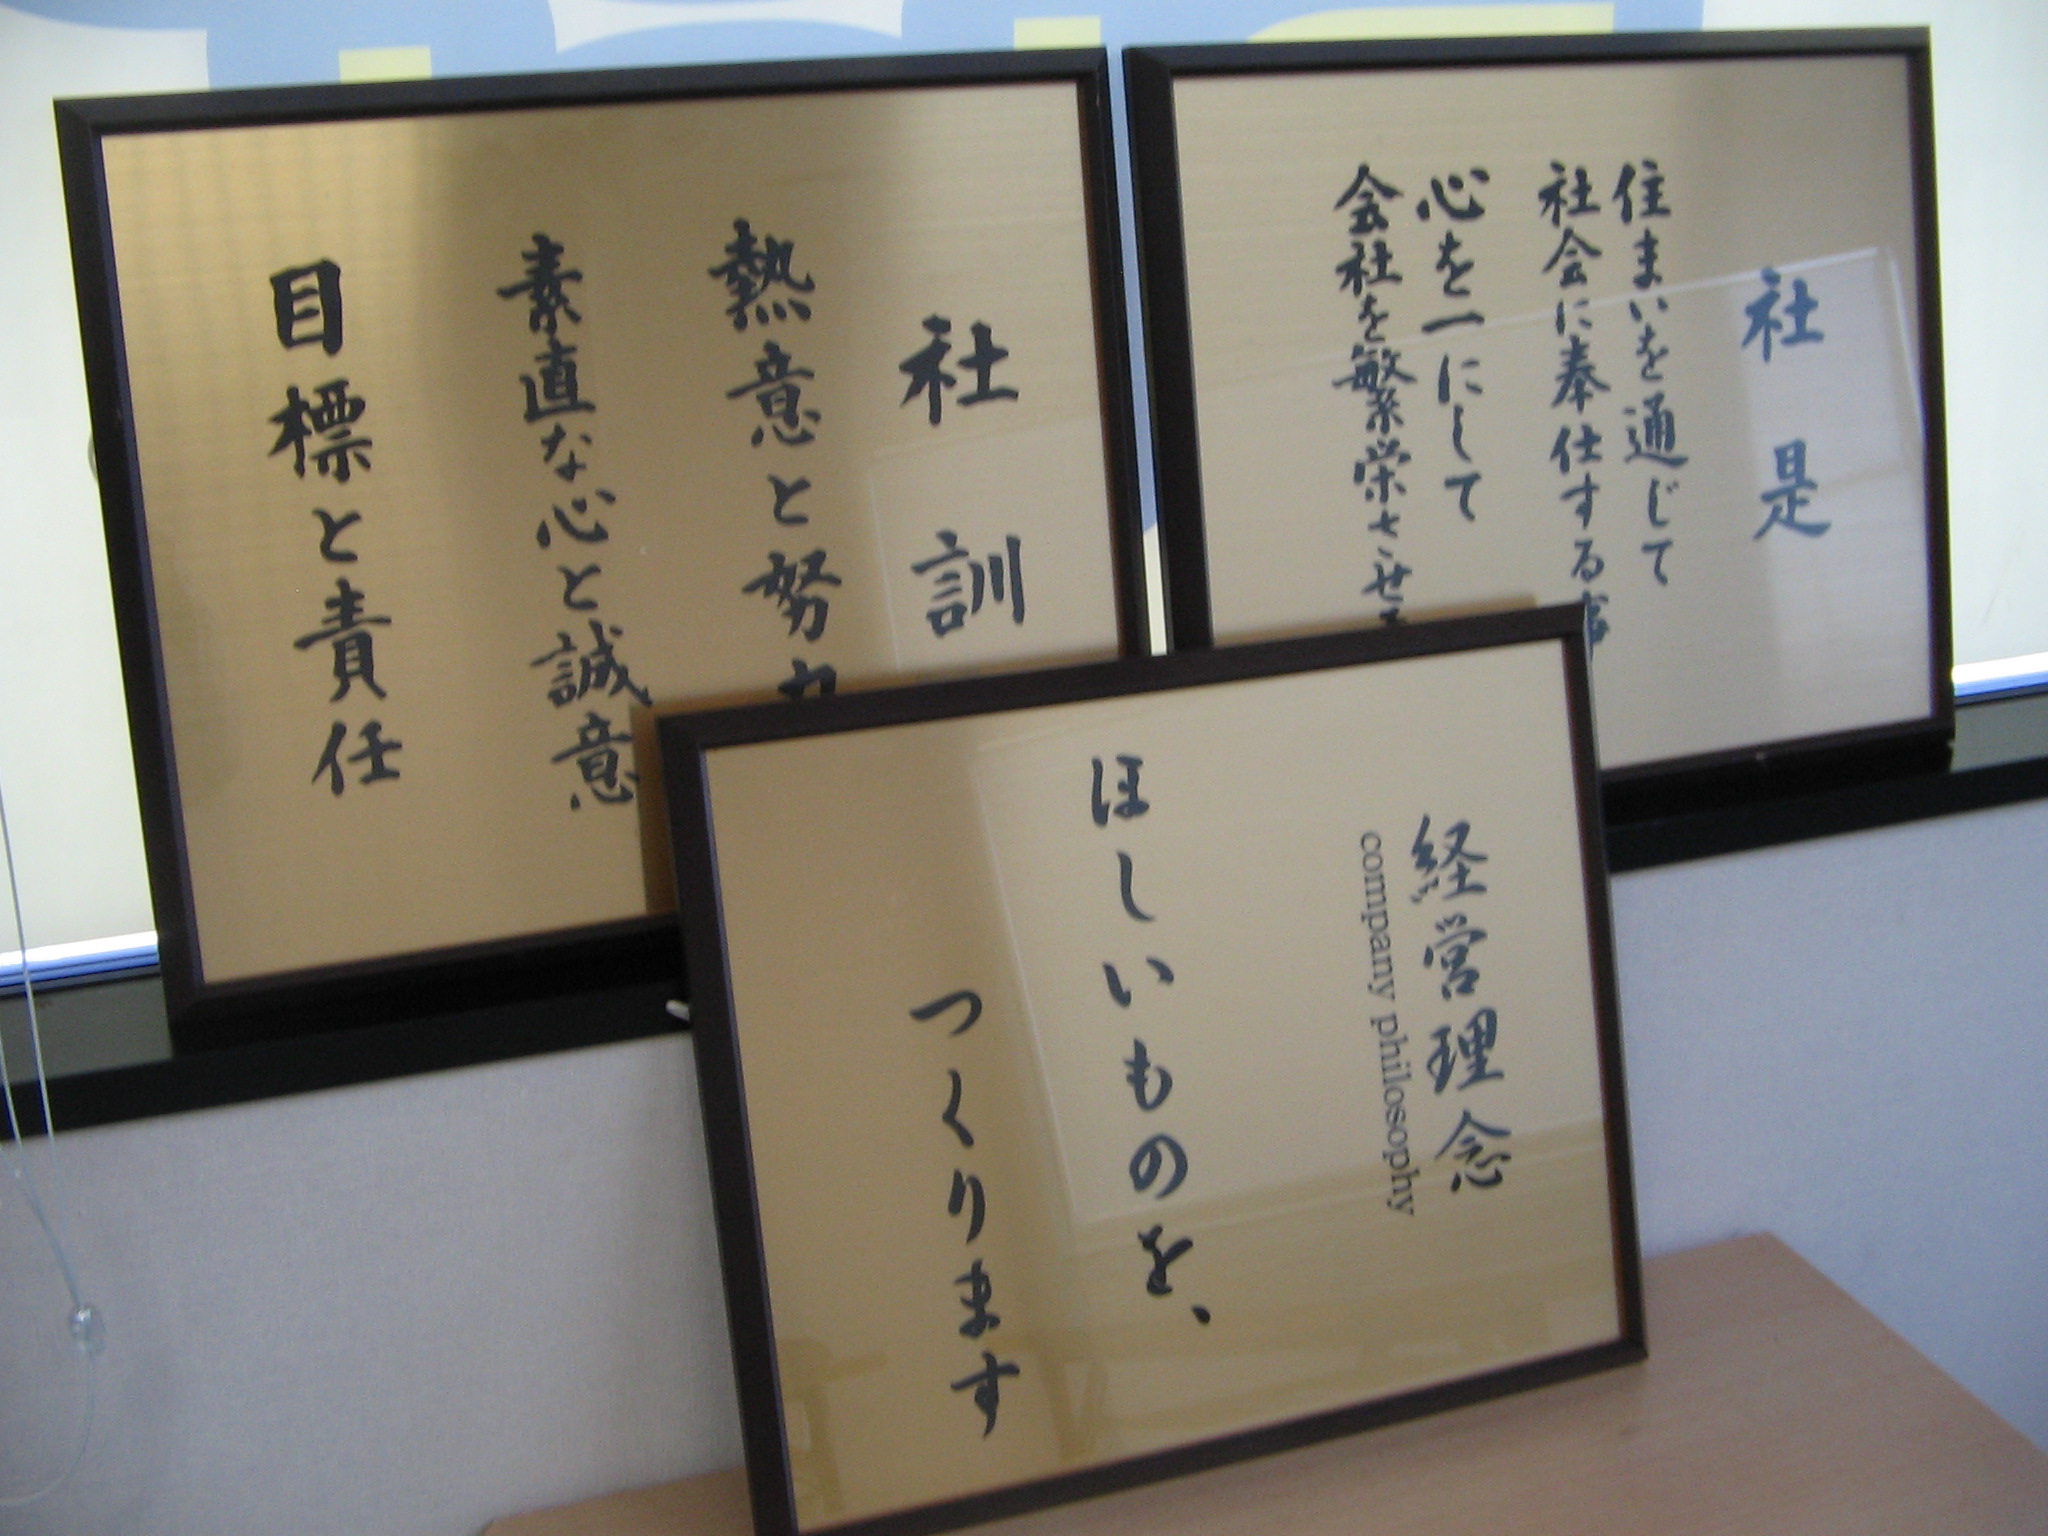 社是
住まいを通じて
社会に奉仕する事
心を一にして
会社を繁栄させ
社訓
熱意と努力
素直な心と誠意
目標と責任
経営理念
company philosophy
ほしいものを、
つくります